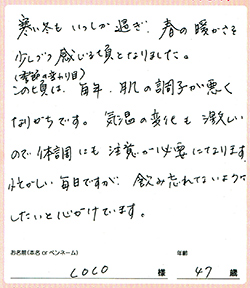 寒い冬もいつしか過ぎ、春の暖かさを
少しづつ感じる頃となりました。
(季節の変わり目)
この頃は、毎年、肌の調子が悪く
なりがちです。気温の変化も激しい
ので体調にも注意が必要になります。
忙しい毎日ですが、飲み忘れないように
したいと心がけています。
お名前(本名 or ペンネーム)
年齢
COCO 様 47 歳